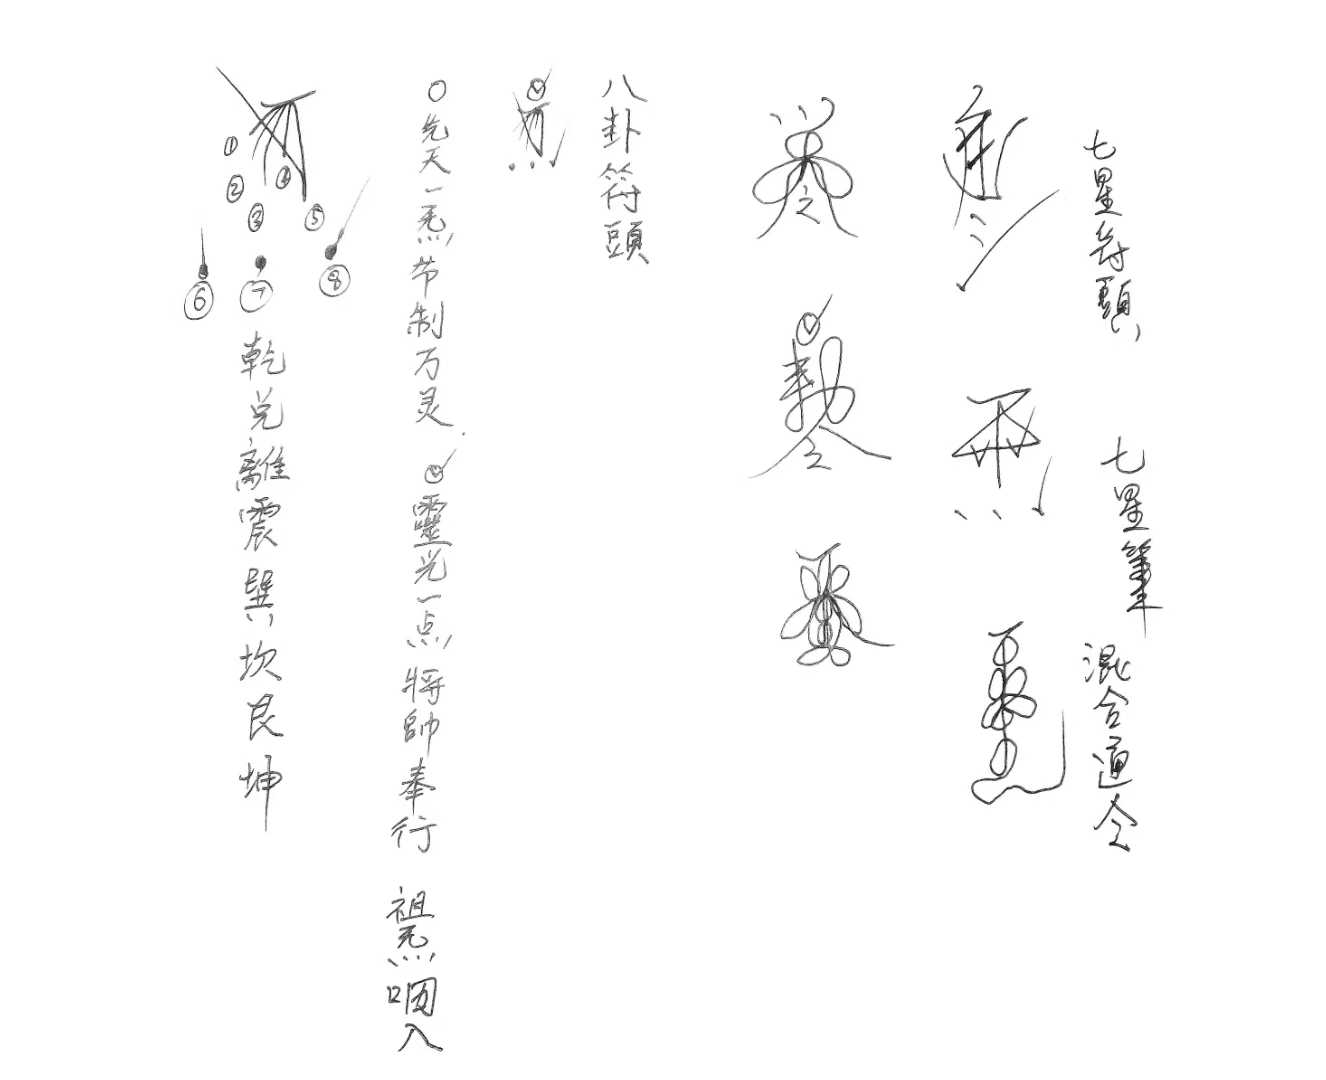 七星符頭
七星筆
混合道令
八卦符頭
〇先天一炁带制万灵
靈光一点将帥奉行
祖炁咽入
① ② ③ ④ ⑤ ⑥ ⑦ ⑧
乾兑離震巽坎艮坤